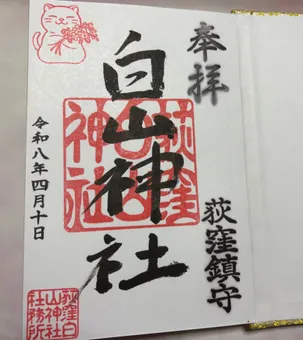 奉拝
荻窪鎮守
白山神社
荻窪
白山
神社
令和八年四月十日
荻窪白
山神社
社務所